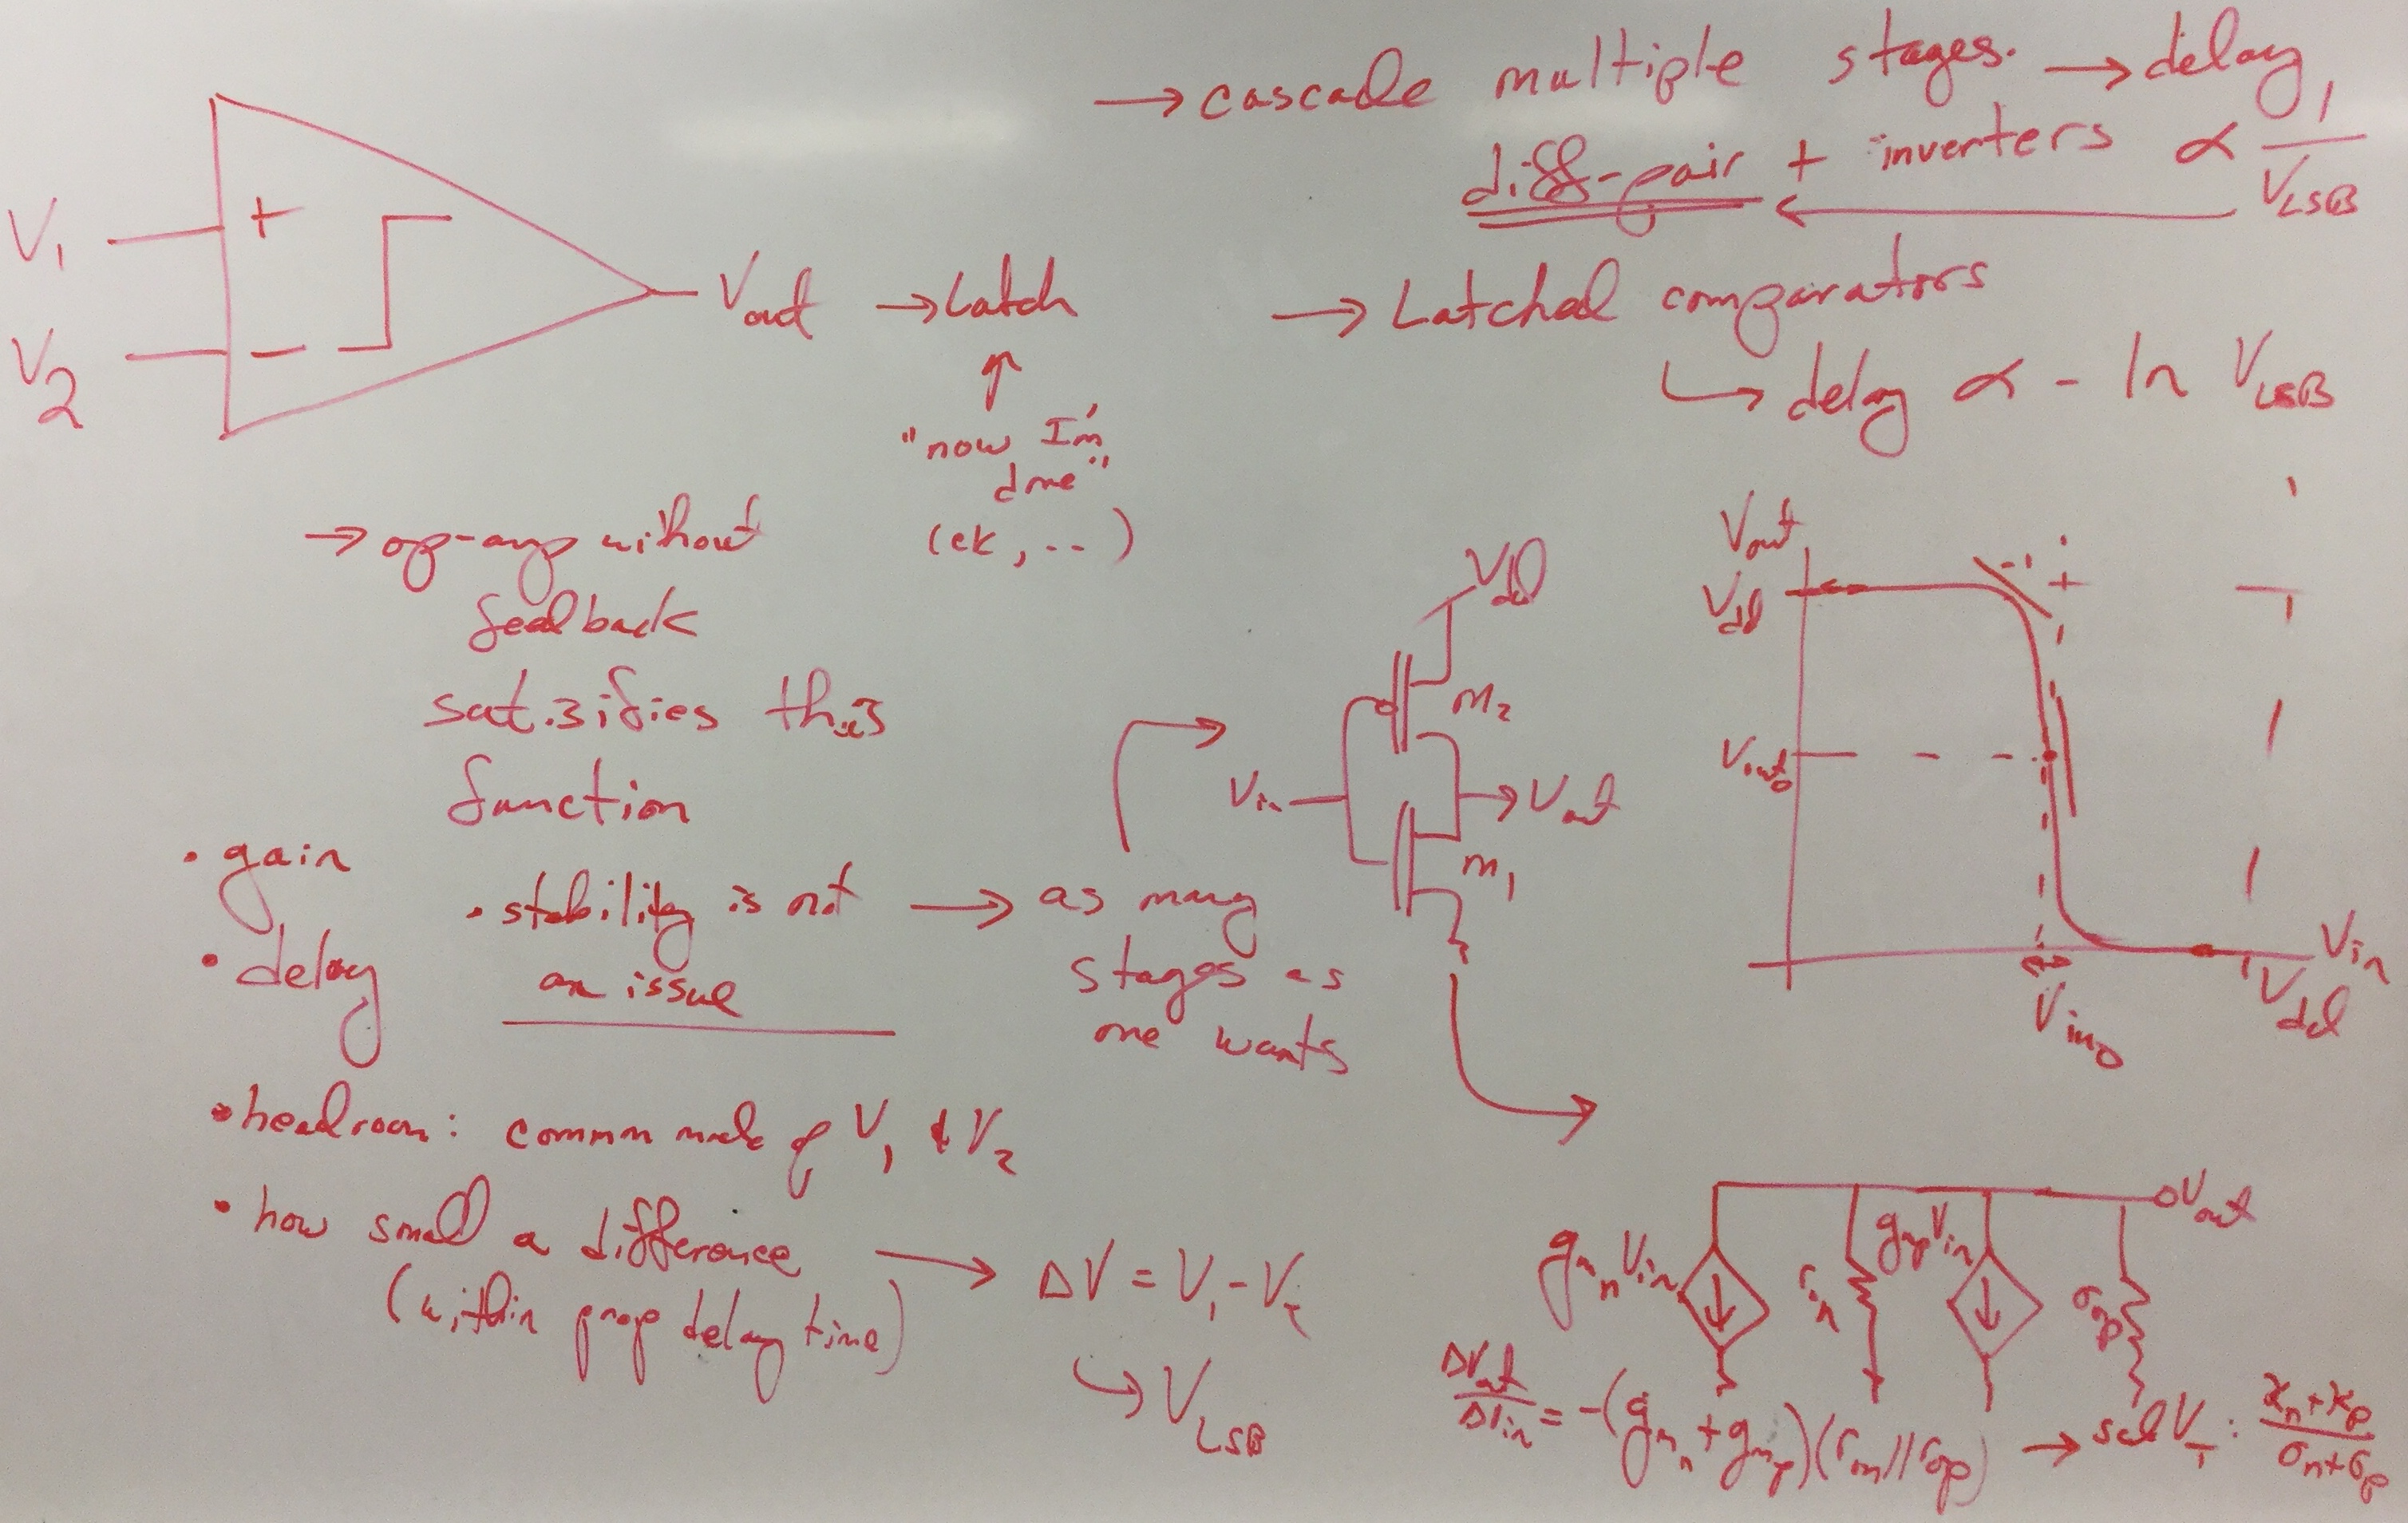 → cascade multiple stages. → delay
diff-pair + inverters ∝ 1/V_LSB
V_1
+
V_2
−
V_out → Latch
↑
"now I'm
done"
(ck, ..)
→ Latched comparators
↳ delay ∝ - ln V_LSB
→ op-amp without
feedback
satisifies this
function
• gain
• delay
• stability is not
an issue
→ as many
stages as
one wants
• headroom: common mode of V_1 & V_2
• how small a difference
(within prop delay time)
→ ΔV = V_1 - V_2
↳ V_LSB
V_dd
M_2
V_in
→ V_out
M_1
V_out
V_dd
V_out_0
V_in
V_dd
V_in_0
V_out
g_m_n V_in
r_on
g_m_p V_in
r_op
ΔV_out/ΔV_in = -(g_m_n + g_m_p)(r_on // r_op) → sub V_T: (κ_n+κ_p)/(σ_n+σ_p)